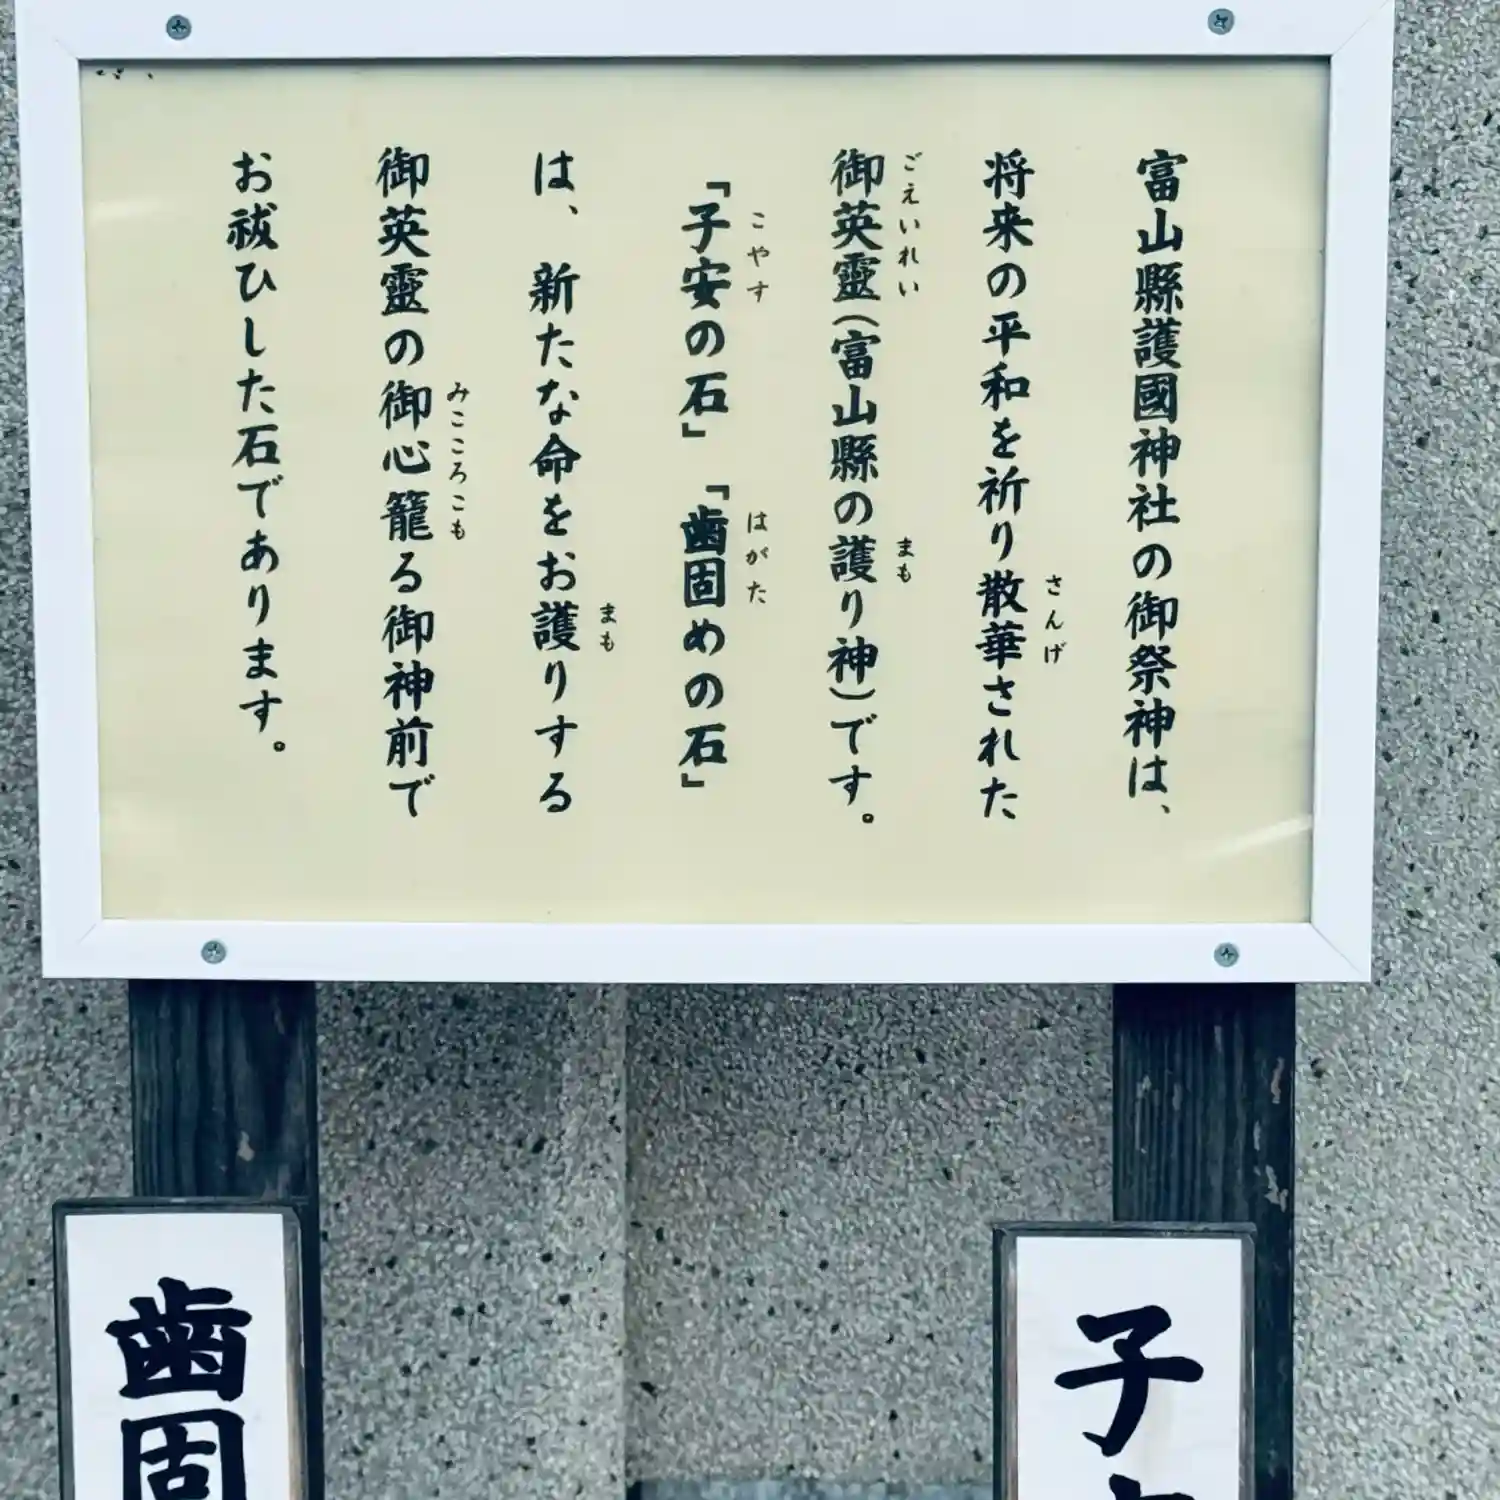 富山縣護國神社の御祭神は、
将来の平和を祈り散華された
さんげ
御英靈(富山縣の護り神)です。
ごえいれい
まも
「子安の石」「歯固めの石」
こやす
はがた
は、新たな命をお護りする
まも
御英靈の御心籠る御神前で
みこころこも
お祓ひした石であります。
子
歯固